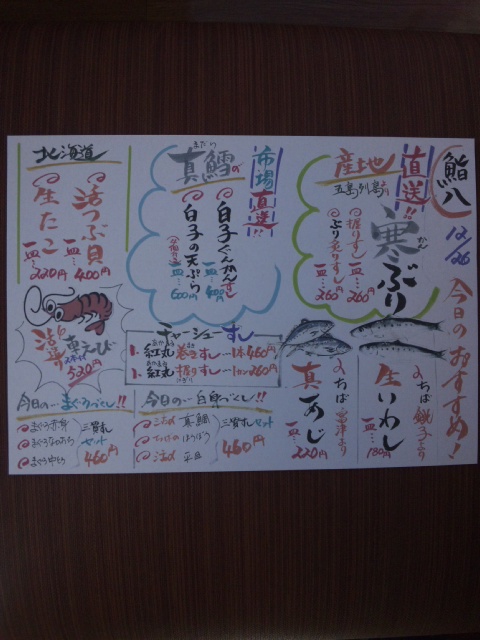 鮨八
12/26
今日のおすすめ!
直送!!
産地
五島列島より
寒ぶり
かん
握りすし
一皿…260円
ぶり炙りすし
一皿…260円
ちば銚子より
生いわし
一皿…180円
ちば富津より
真あじ
一皿…220円
市場直送!!
真鱈の
まだら
白子ぐんかんすし
一皿…400円
白子の天ぷら
一皿…600円
チャーシューすし
1、紅丸巻きすし…1本460円
1、紅丸握りすし…1カン260円
にぎり
北海道
活つぶ貝
一皿…400円
生たこ
一皿…220円
活〆
車えび
520円
今日の一白身づくし!!
活〆 真鯛
ほうぼう
活〆 平目
三貫すしセット
460円
今日の一まぐろづくし!!
まぐろ赤身
まぐろ中とろ
三貫すしセット
460円